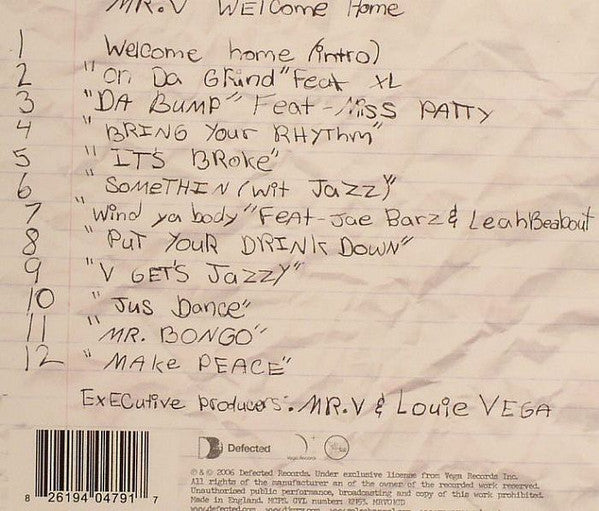 MR.V WELCOME Home
1 Welcome home (intro)
2 "On Da Grind" Feat XL
3 "DA BUMP" Feat - Miss PATTY
4 "BRING Your RHYTHM"
5 "IT'S BRoke"
6 "SOMETHIN (wit Jazz)"
7 "Wind ya body" FEAT - Jae Barz & Leah Beabout
8 "PUT YOUR DRINK DOWN"
9 "V GETS Jazzy"
10 "Jus Dance"
11 "MR. BONGO"
12 "MAKE PEACE"
EXECutive producers: MR.V & Louie VEGA
Defected
Vega Records
℗ & © 2006 Defected Records. Under exclusive license from Vega Records Inc.
All rights of the manufacturer an of the owner of the recorded work reserved.
Unauthorised public performance, broadcasting and copy of this work prohibited.
Made in England. MCPS. CVL number: MRV01CD
8 26194 04791 7